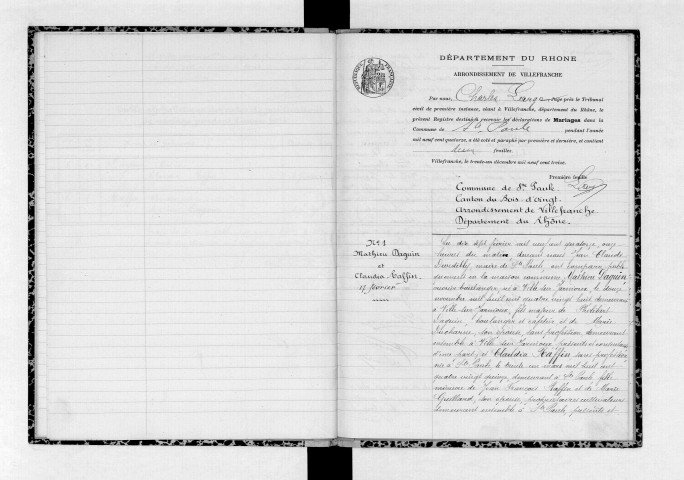 DÉPARTEMENT DU RHONE
ARRONDISSEMENT DE VILLEFRANCHE
Par nous, Charles Large juge près le Tribunal
civil de première instance, séant à Villefranche, département du Rhône, le
présent Registre destiné à recevoir les déclarations de Mariages dans la
Commune de Ste Paule pendant l'année
mil neuf cent quatorze, a été coté et paraphé par première et dernière, et contient
feuilles.
Villefranche, le trente-un décembre mil neuf cent treize.
Première feuille
Commune de Ste Paule
Canton du Bois-d'Oingt
Arrondissement de Villefranche
Département du Rhône.
No 1
Mathieu Daguin
et
Claudia Raffin
17 février
Du dix sept février mil neuf cent quatorze, onze
heures du matin devant nous Jean Claude
maire de Ste Paule, ont comparu publi
quement en la maison commune Mathieu Daguin
ouvrier boulanger, né à Ville sur Jarnioux, le douze
novembre mil huit cent quatre vingt huit demeurant
à Ville sur Jarnioux, fils majeur de Philibert
Daguin, boulanger et cafetier et de Marie
son épouse, sans profession demeurant
ensemble à Ville sur Jarnioux, présents et consentants
d'une part; et Claudia Raffin sans profession
née à Ste Paule, le trente un mars mil huit cent
quatre vingt treize, demeurant à Ste Paule, fille
mineure de Jean François Raffin et de Marie
son épouse, propriétaires cultivateurs
demeurant ensemble à Ste Paule, présents et